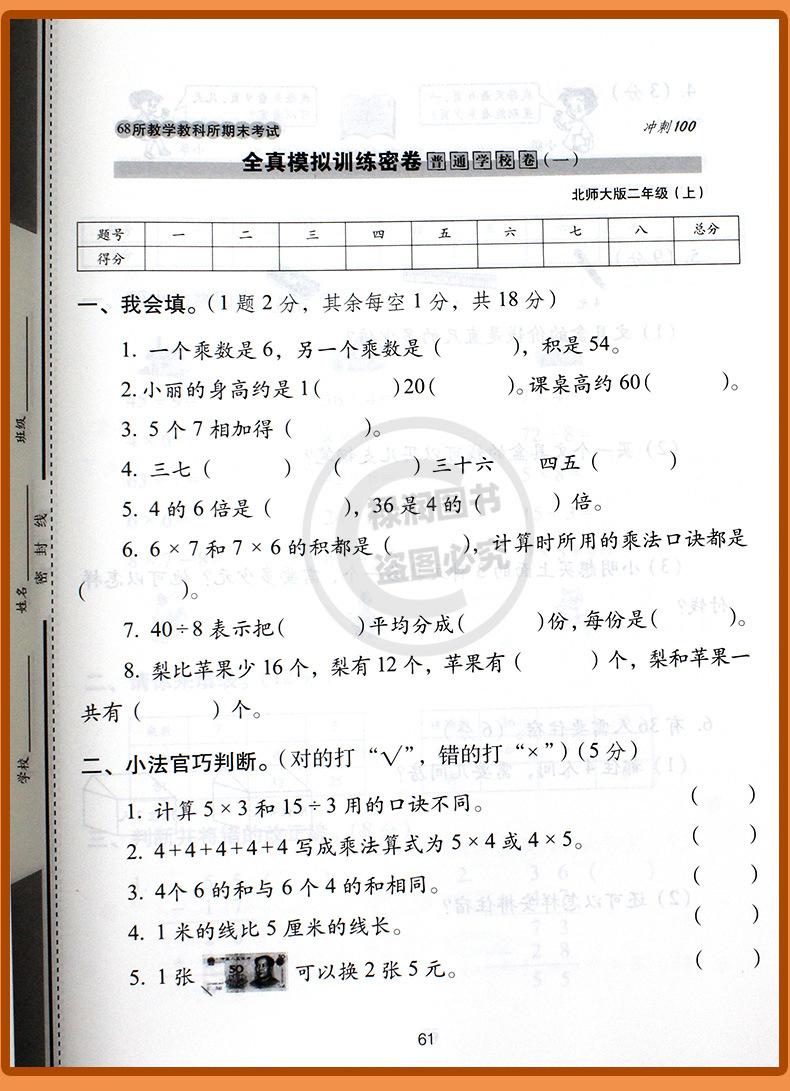 68所教学教科所期末考试
冲刺100
全真模拟训练密卷 普通学校卷(一)
北师大版二年级(上)
题号 一 二 三 四 五 六 七 八 总分
得分
一、我会填。(1题2分，其余每空1分，共18分)
1. 一个乘数是6，另一个乘数是（ ），积是54。
2.小丽的身高约是1( )20( )。课桌高约60( )。
3. 5个7相加得（ ）。
4. 三七（ ） （ ）三十六 四五（ ）
5. 4的6倍是（ ），36是4的（ ）倍。
6. 6×7和7×6的积都是（ ），计算时所用的乘法口诀都是
( )。
7. 40÷8表示把( )平均分成( )份，每份是( )。
8. 梨比苹果少16个，梨有12个，苹果有（ ）个，梨和苹果一
共有（ ）个。
二、小法官巧判断。(对的打“√”，错的打“×”)(5分)
1. 计算5×3和15÷3用的口诀不同。 ( )
2. 4+4+4+4+4写成乘法算式为5×4或4×5。 ( )
3. 4个6的和与6个4的和相同。 ( )
4. 1米的线比5厘米的线长。 ( )
5. 1张 50 可以换2张5元。 ( )
61
班级
姓名
学校
密封线
禄润图书
盗图必究